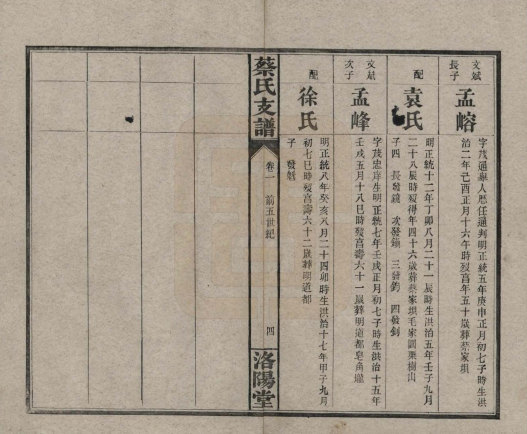 文斌
長子
孟嵱
字茂通
舉人歷任通判明正統五年庚申正月初七子時生洪
治二年己酉正月十六午時歿享年五十歲葬蔡家垻
配
袁氏
明正統十二年丁卯八月二十一辰時生洪治五年壬子九月
二十八辰時歿得年四十六歲葬蔡家垻毛家園栗樹山
子四 長發 次發 三發釣 四發釗
文斌
次子
孟峰
字茂忠
庠生明正統七年壬戌正月初七子時生洪治十五年
壬戌五月十八巳時歿享壽六十一歲葬明道都皂角壠
配
徐氏
明正統八年癸亥八月二十四卯時生洪治十七年甲子九月
初七巳時歿享壽六十二歲葬明道都
子 發
蔡氏支譜
卷一 前五世紀
四
洛陽堂